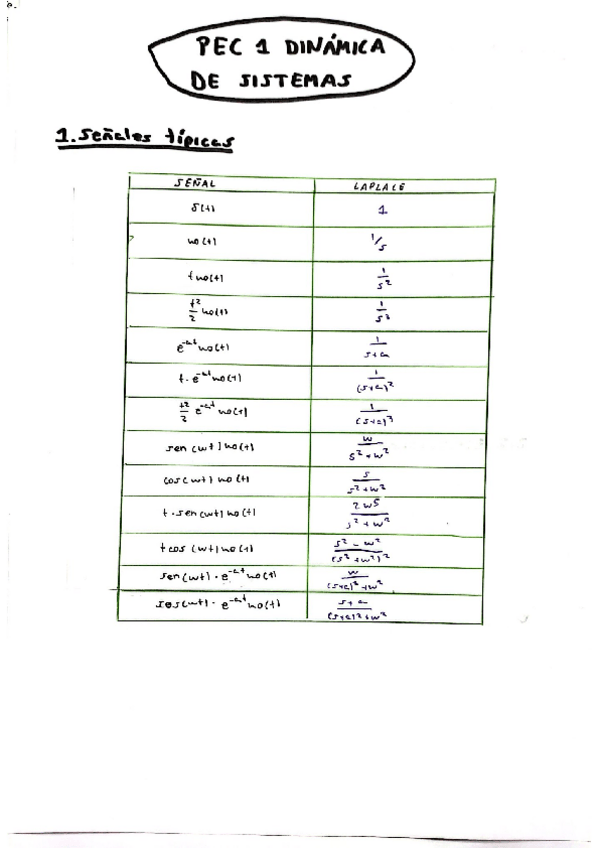 PEC 1 DINÁMICA
DE SISTEMAS
1. Señales típicas
SEÑAL LAPLACE
δ(t) 1
u₀(t) 1/s
t u₀(t) 1/s²
t²/2 u₀(t) 1/s³
e^-at u₀(t) 1/(s+a)
t · e^-at u₀(t) 1/(s+a)²
t²/2 e^-at u₀(t) 1/(s+a)³
sen(wt) u₀(t) w/(s²+w²)
cos(wt) u₀(t) s/(s²+w²)
t · sen(wt) u₀(t) 2ws/(s²+w²)
t cos(wt) u₀(t) (s²-w²)/(s²+w²)²
sen(wt) · e^-at u₀(t) w/((s+a)²+w²)
cos(wt) · e^-at u₀(t) (s+a)/((s+a)²+w²)